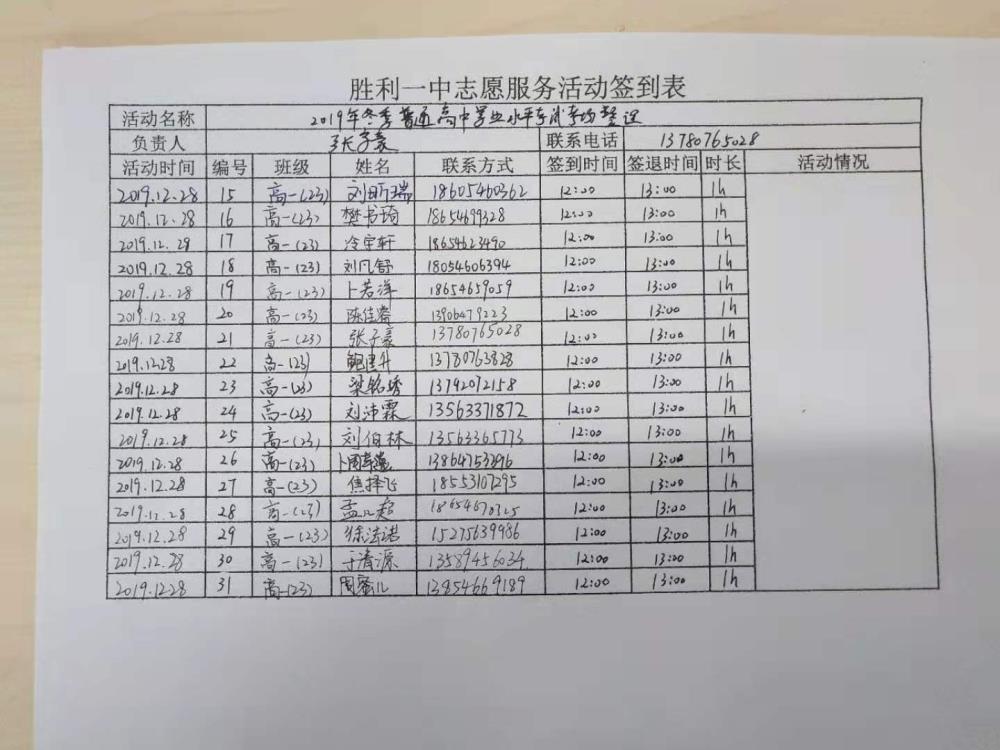 胜利一中志愿服务活动签到表
活动名称 2019年冬季普通高中学业水平考试考场整理
负责人 张子豪 联系电话 13780765028
活动时间 编号 班级 姓名 联系方式 签到时间 签退时间 时长 活动情况
2019.12.28 15 高一(23) 刘昕瑞 18605460362 12:00 13:00 1h
2019.12.28 16 高一(23) 樊书琦 18654699328 12:00 13:00 1h
2019.12.28 17 高一(23) 冷宇轩 18654623490 12:00 13:00 1h
2019.12.28 18 高一(23) 刘凡舒 18054606394 12:00 13:00 1h
2019.12.28 19 高一(23) 卜若洋 18654659059 12:00 13:00 1h
2019.12.28 20 高一(23) 陈佳睿 13906479223 12:00 13:00 1h
2019.12.28 21 高一(23) 张子豪 13780765028 12:00 13:00 1h
2019.12.28 22 高一(23) 13780763828 12:00 13:00 1h
2019.12.28 23 高一(23) 梁铭琇 13792072158 12:00 13:00 1h
2019.12.28 24 高一(23) 刘沛霖 13563371872 12:00 13:00 1h
2019.12.28 25 高一(23) 刘伯林 13563365773 12:00 13:00 1h
2019.12.28 26 高一(23) 13864753396 12:00 13:00 1h
2019.12.28 27 高一(23) 焦择飞 18553107295 12:00 13:00 1h
2019.12.28 28 高一(23) 18654670325 12:00 13:00 1h
2019.12.28 29 高一(23) 徐浩诺 15275639986 12:00 13:00 1h
2019.12.28 30 高一(23) 于清源 13589456034 12:00 13:00 1h
2019.12.28 31 高一(23) 周蜜儿 13854669189 12:00 13:00 1h